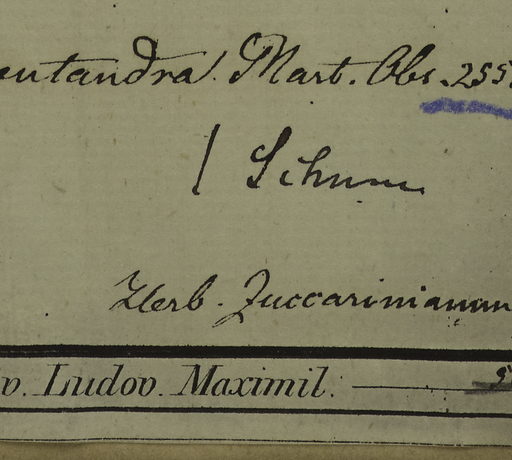 entandra. Mart. Obs. 255
/ Schum
Herb. Zuccarinianum
v. Ludov. Maximil.